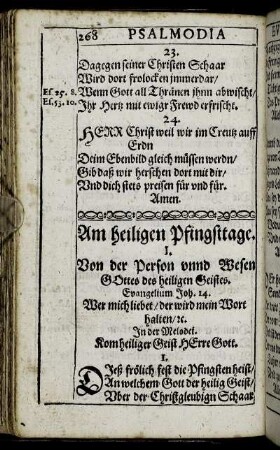 268 PSALMODIA
23.
Dagegen seiner Christen Schaar
Wird dort frolocken jmmerdar/
Es. 25. 8. Wenn Gott all Thränen jhnn abwischt/
Es. 53. 10. Jhr Hertz mit ewigr Frewd erfrischt.
24.
HERR Christ weil wir im Creutz auff
Erdn
Deim Ebenbild gleich müssen werdn/
Gib daß wir herschen dort mit dir/
Vnd dich stets preisen für vnd für.
Amen.
Am heiligen Pfingsttage.
I.
Von der Person vnnd Wesen
GOttes des heiligen Geistes.
Evangelium Joh. 14.
Wer mich liebet/ der wird mein Wort
halten/ ꝛc.
In der Melodei.
Kom heiliger Geist HErre Gott.
1.
Dieß frölich fest die Pfingsten heist/
An welchem Gott der heilig Geist/
Vber der Christgleubign Schaar